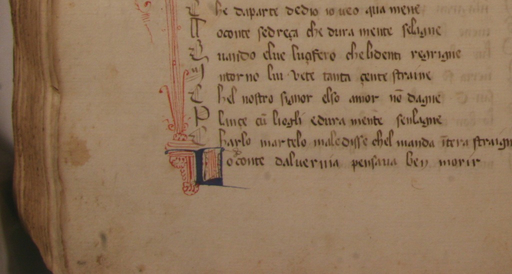 he daparte dedio io veo qua mene
oconte sedreça che dura mente selagne
uando elue lugfero che lidenti regrigne
ntorno lui vete tanta çente straine
C hel nostro signor elso amor nō dagne
P lançe cū liogli e dura mente senlagne
C harlo martelo maledisse chel manda ītera straigne
L o conte dalvernia pensava ben morir